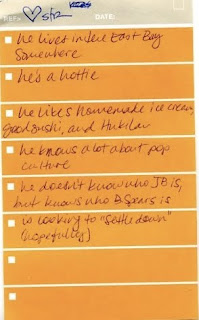 DATE:
he lives in the East Bay
Somewhere
he's a hottie
he likes homemade ice cream,
good sushi, and Hukilau
he knows a lot about pop
culture
he doesn't know who JB is,
but knows who B Spears is
is looking to "settle down"
(hopefully)